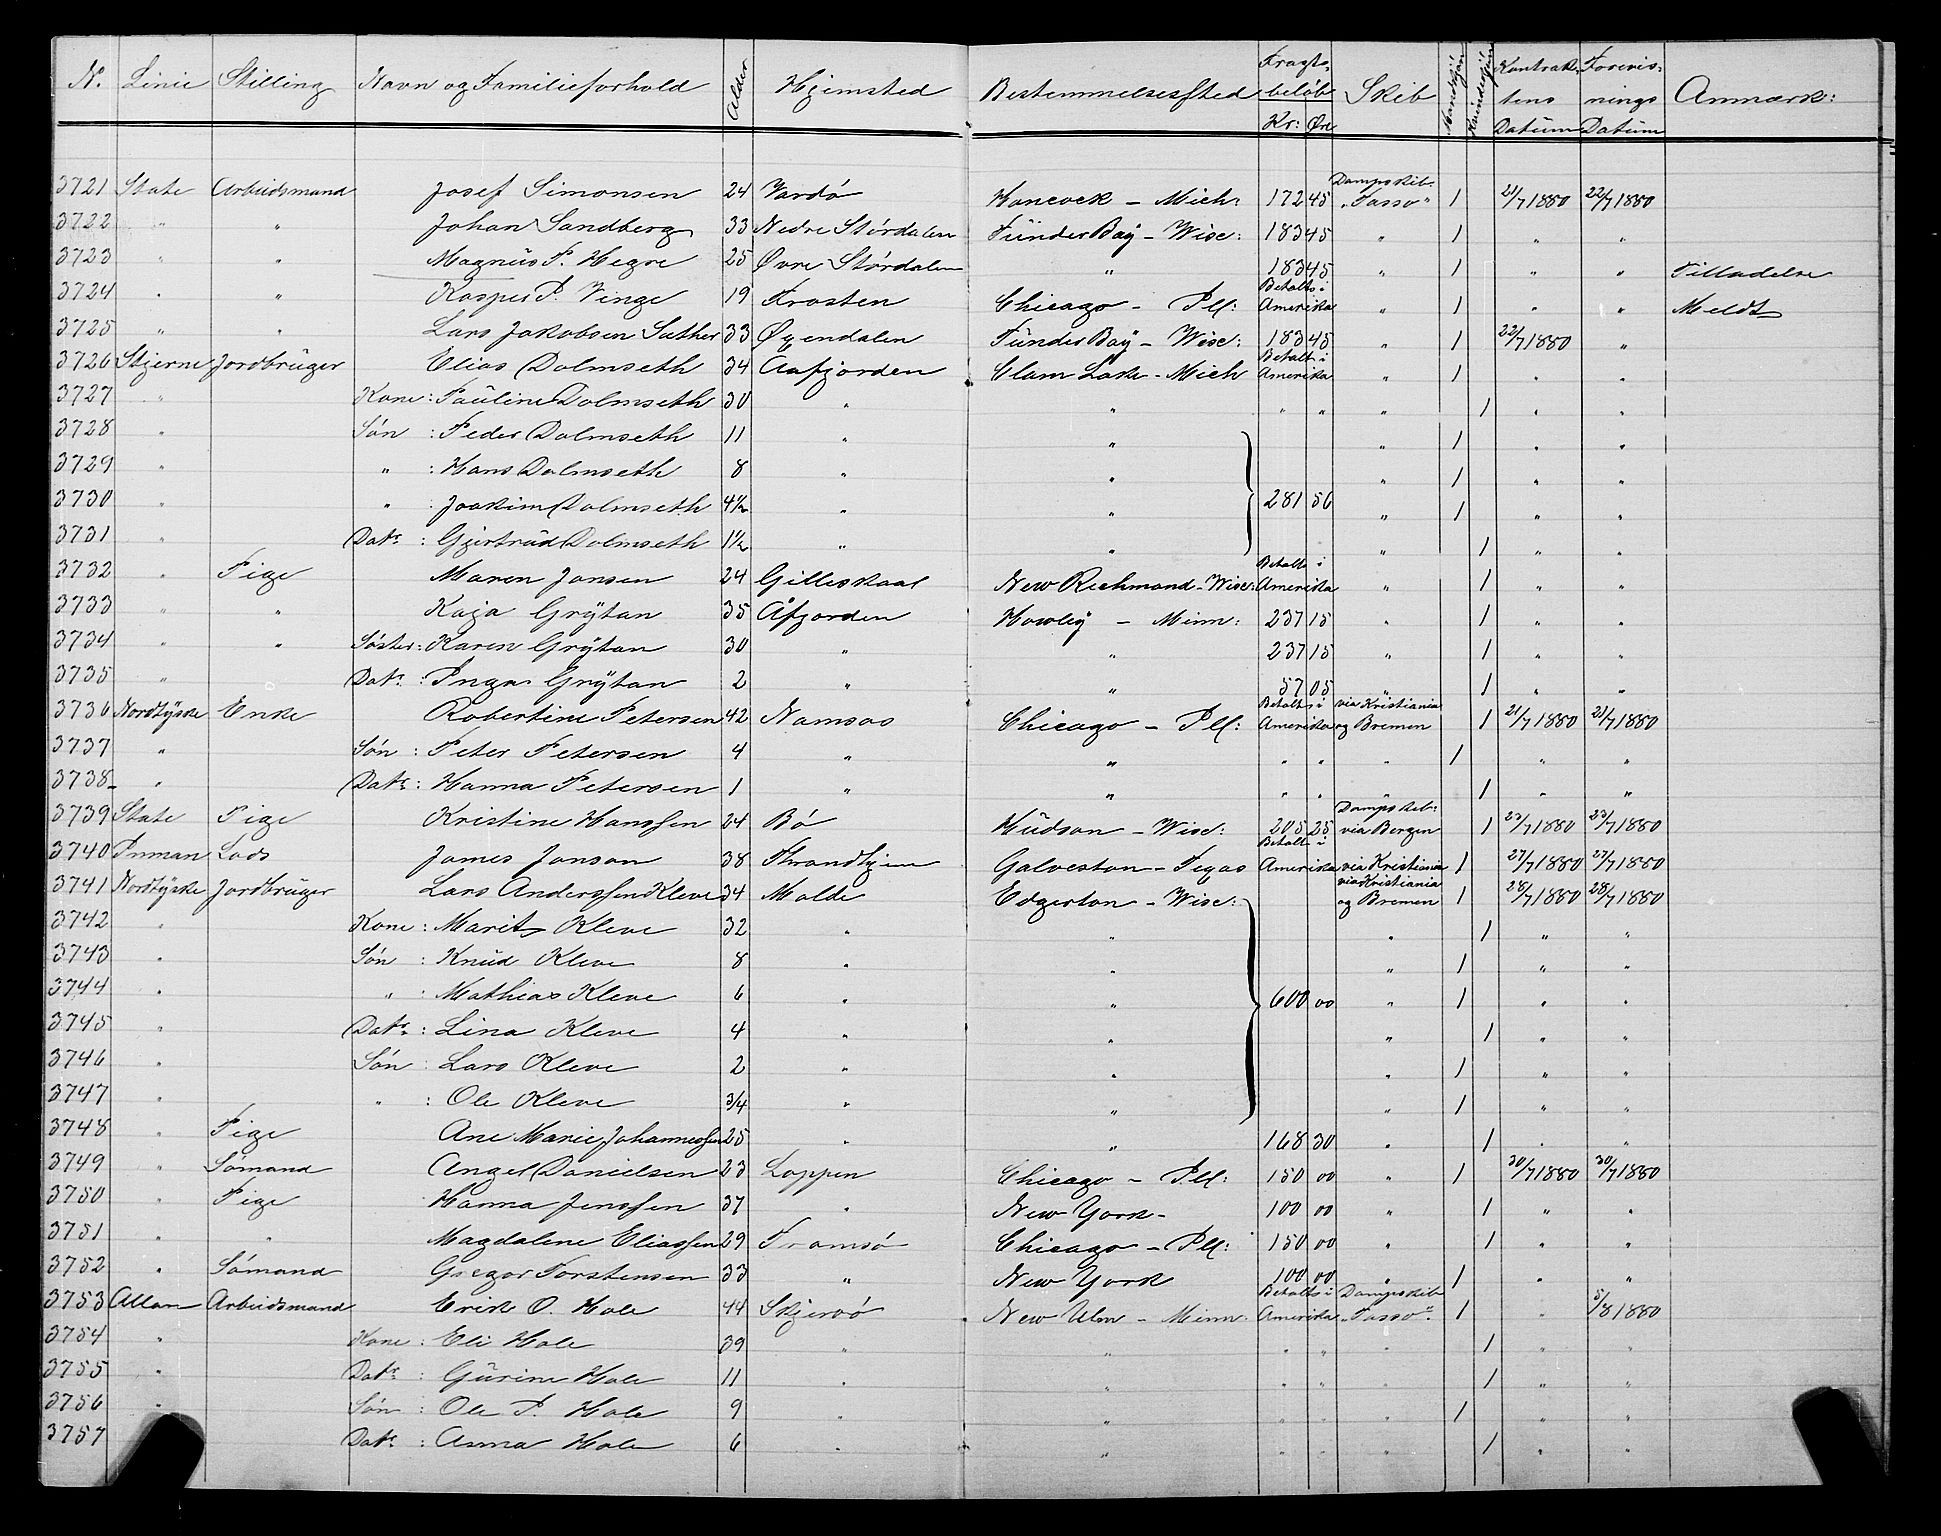 N. Linie Stilling Navn og Familieforhold Alder Hjemsted Bestemmelsessted Fragtbeløb Kr: Øre Skib Mandkjøn Kvindekjøn Kontraktens Datum Forevisnings Datum Anmærk:
3721 State Arbeidsmand Josef Simonsen 24 Vardø Hancock – Mich: 172 45 Dampskib. "Tasso" 1 21/7 1880 22/7 1880
3722 " " Johan Sandberg 33 Nedre Størdalen Tünder Bay – Wisc: 183 45 " 1 " "
3723 " " Magnus P. Hegre 25 Øvre Størdalen " 183 45 " 1 " " Tilladelse
3724 " " Kasper P. Vinge 19 Frosten Chicago – Ill: Betalt i Amerika " 1 " " Meldt
3725 " " Lars Jakobsen Sæther 33 Øyendalen Tünder Bay – Wisc: 183 45 " 1 22/7 1880 "
3726 Stjerne Jordbruger Elias Dolmseth 34 Aafjorden Clam Lake – Mich Betalt i Amerika " 1 " "
3727 " Kone : Pauline Dolmseth 30 " " " " " 1 " "
3728 " Søn : Peder Dolmseth 11 " " " 1 " "
3729 " " : Hans Dolmseth 8 " " " 1 " "
3730 " " : Joakim Dolmseth 4½ " " 281 56 " 1 " "
3731 " Datr : Gjertrud Dolmseth 1½ " " " 1 " "
3732 " Pige Maren Jansen 24 Gilleskaal New Richmond – Wisc: Betalt i Amerika " 1 " "
3733 " " Kaja Grytan 35 Åfjorden Howley – Minn: 237 15 " 1 " "
3734 " " Søster : Karen Grytan 30 " " 237 15 " 1 " "
3735 " Datr : Inga Grytan 2 " " 57 05 " 1 " "
3736 Nordtyske Enke Robertine Petersen 42 Namsos Chicago – Ill: Betalt i Amerika via Kristiania og Bremen 1 21/7 1880 21/7 1880
3737 " Søn : Peter Petersen 4 " " " " " 1 " "
3738 " Datr : Hanna Petersen 1 " " " " " 1 " "
3739 State Pige Kristine Hanssen 24 Bø Hudson – Wisc: 205 25 Dampskib: via Bergen 1 23/7 1880 23/7 1880
3740 Inman Lods James Janson 38 Throndhjem Galveston – Texas Betalt i Amerika via Kristiania 1 27/7 1880 27/7 1880
3741 Nordtyske Jordbruger Lars Anderssen Kleve 34 Molde Edgerton – Wisc: via Kristiania og Bremen 1 28/7 1880 28/7 1880
3742 " Kone : Marit Kleve 32 " " " 1 " "
3743 " Søn : Knud Kleve 8 " " " 1 " "
3744 " " : Mathias Kleve 6 " " 600 00 " 1 " "
3745 " Datr : Lina Kleve 4 " " " 1 " "
3746 " Søn : Lars Kleve 2 " " " 1 " "
3747 " " : Ole Kleve 3/4 " " " 1 " "
3748 " Pige Ane Marie Johannessen 25 " " 168 30 " 1 " "
3749 " Sømand Angel Danielsen 23 Loppen Chicago – Ill: 150 00 " 1 30/7 1880 30/7 1880
3750 " Pige Hanna Jenssen 37 " New York – 100 00 " 1 " "
3751 " " Magdalene Eliassen 29 Tromsø Chicago – Ill: 150 00 " 1 " "
3752 " Sømand Gregor Torstensen 33 " New York 100 00 " 1 " "
3753 Allan Arbeidsmand Erik O. Hole 44 Skjervø New Ulm – Minn. Betalt i Amerika Dampskib "Tasso". 1 " 5/8 1880
3754 " Kone : Eli Hole 39 " " " " " 1 " "
3755 " Datr : Gurine Hole 11 " " " " " 1 " "
3756 " Søn : Ole P. Hole 9 " " " " " 1 " "
3757 Datr : Anna Hole 6 " " " " " 1 " "